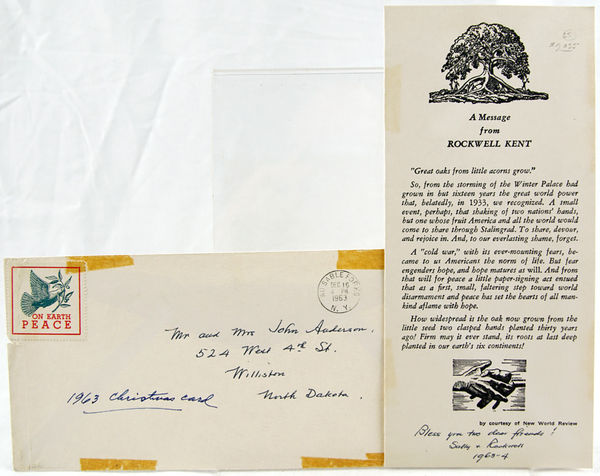 A Message
from
ROCKWELL KENT
"Great oaks from little acorns grow."
So, from the storming of the Winter Palace had
grown in but sixteen years the great world power
that, belatedly, in 1933, we recognized. A small
event, perhaps, that shaking of two nations' hands,
but one whose fruit America and all the world would
come to share through Stalingrad. To share, devour,
and rejoice in. And, to our everlasting shame, forget.
A "cold war," with its ever-mounting fears, be-
came to us Americans the norm of life. But fear
engenders hope, and hope matures as will. And from
that will for peace a little paper-signing act ensued
that as a first, small, faltering step toward world
disarmament and peace has set the hearts of all man-
kind aflame with hope.
How widespread is the oak now grown from the
little seed two clasped hands planted thirty years
ago! Firm may it ever stand, its roots at last deep
planted in our earth's six continents!
by courtesy of New World Review
Bless you two dear friends!
Sally + Rockwell
1963-4
ON EARTH
PEACE
AU SABLE FORKS
DEC 16
PM
1963
N. Y.
Mr and Mrs John Anderson,
524 West 4th St.
Williston
North Dakota.
1963 Christmas card